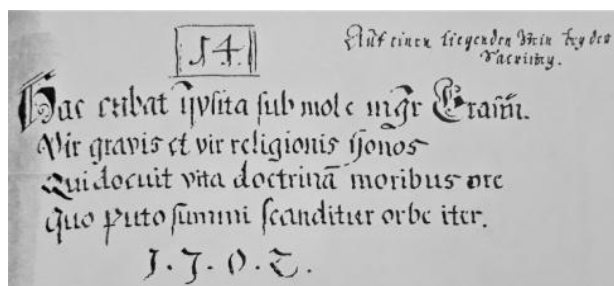 54.
Auf einen liegenden Stein bey der
Sacristey.
Hac cubat sub mole mgr Erasm.
Vir gravis et vir religionis honos
Qui docuit vita doctrinā moribus ore
Quo puto summi scanditur orbe iter.
1.5.0.2.